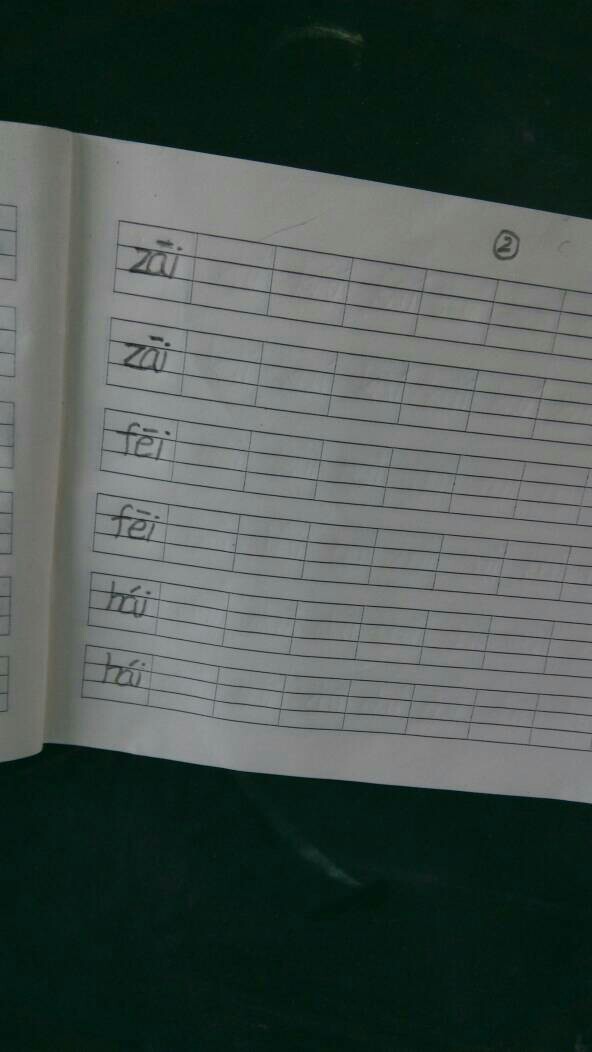 ②
zāi
zāi
fēi
fēi
hái
hái